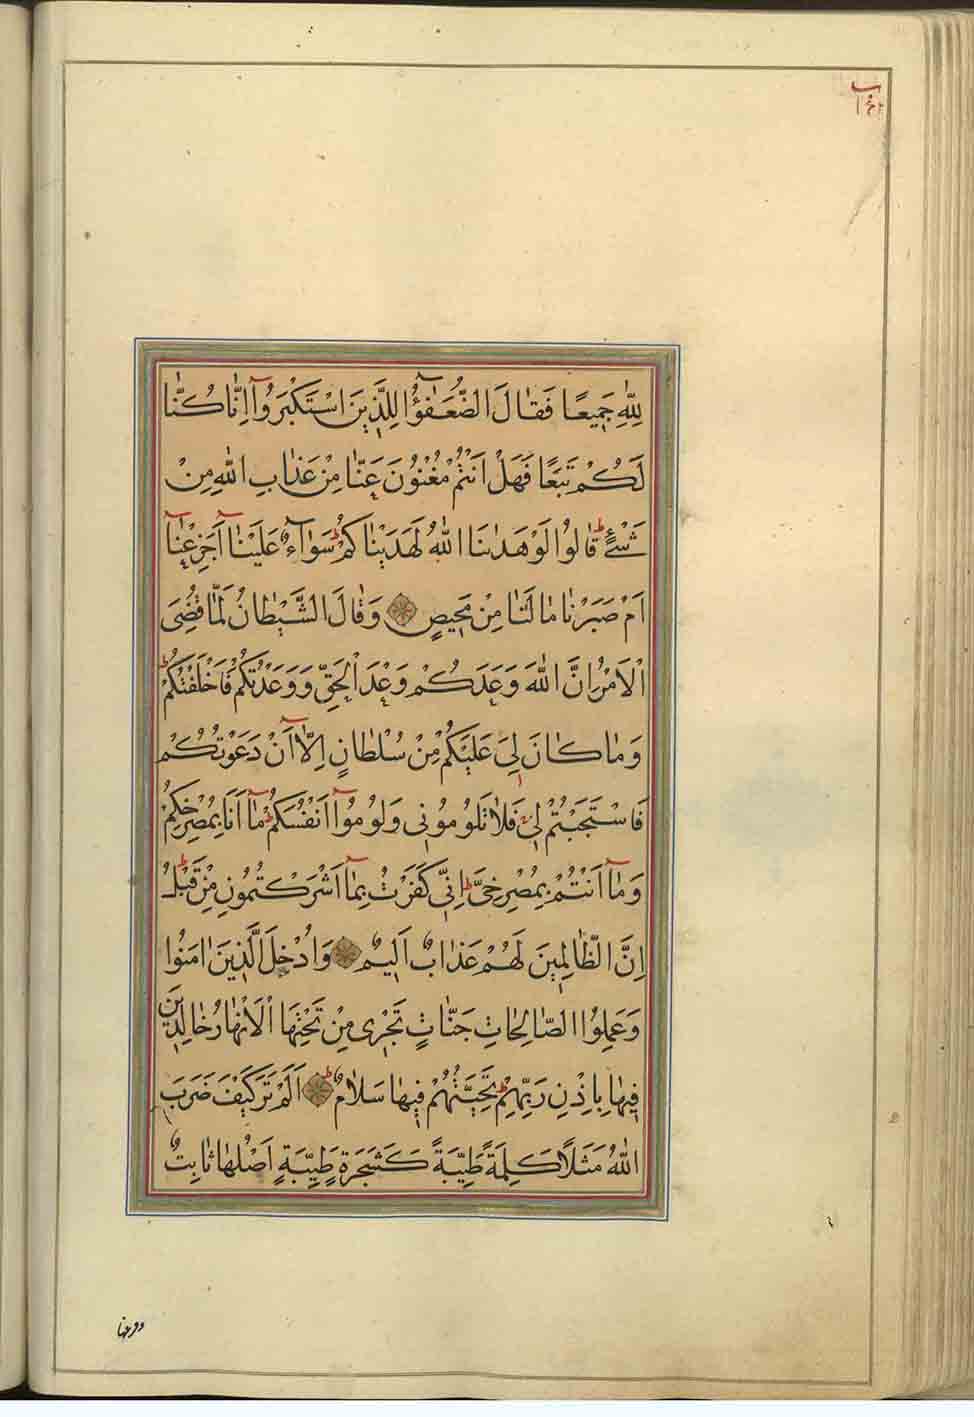 لِلّٰهِ جَمِيعًا فَقَالَ الضُّعَفٰؤُا لِلَّذِينَ اسْتَكْبَرُوآ اِنَّا كُنَّا
لَكُمْ تَبَعًا فَهَلْ اَنْتُمْ مُغْنُونَ عَنَّا مِنْ عَذَابِ اللّٰهِ مِنْ
شَىْءٍ ط قَالُوا لَوْ هَدٰينَا اللّٰهُ لَهَدَيْنَاكُمْ ط سَوَآءٌ عَلَيْنَآ اَجَزِعْنَآ
اَمْ صَبَرْنَا مَا لَنَا مِنْ مَحِيصٍ وَقَالَ الشَّيْطَانُ لَمَّا قُضِىَ
الْاَمْرُ اِنَّ اللّٰهَ وَعَدَكُمْ وَعْدَ الْحَقِّ وَوَعَدْتُكُمْ فَاَخْلَفْتُكُمْ ط
وَمَا كَانَ لِىَ عَلَيْكُمْ مِنْ سُلْطَانٍ اِلَّآ اَنْ دَعَوْتُكُمْ
فَاسْتَجَبْتُمْ لِى فَلَا تَلُومُونِى وَلُومُوآ اَنْفُسَكُمْ ط مَآ اَنَا بِمُصْرِخِكُمْ
وَمَآ اَنْتُمْ بِمُصْرِخِىَّ ط اِنِّى كَفَرْتُ بِمَآ اَشْرَكْتُمُونِ مِنْ قَبْلُ ط
اِنَّ الظَّالِمِينَ لَهُمْ عَذَابٌ اَلِيمٌ وَاُدْخِلَ الَّذِينَ اٰمَنُوا
وَعَمِلُوا الصَّالِحَاتِ جَنَّاتٍ تَجْرِى مِنْ تَحْتِهَا الْاَنْهَارُ خَالِدِينَ
فِيهَا بِاِذْنِ رَبِّهِمْ ط تَحِيَّتُهُمْ فِيهَا سَلَامٌ اَلَمْ تَرَ كَيْفَ ضَرَبَ
اللّٰهُ مَثَلًا كَلِمَةً طَيِّبَةً كَشَجَرَةٍ طَيِّبَةٍ اَصْلُهَا ثَابِتٌ
وفرعها